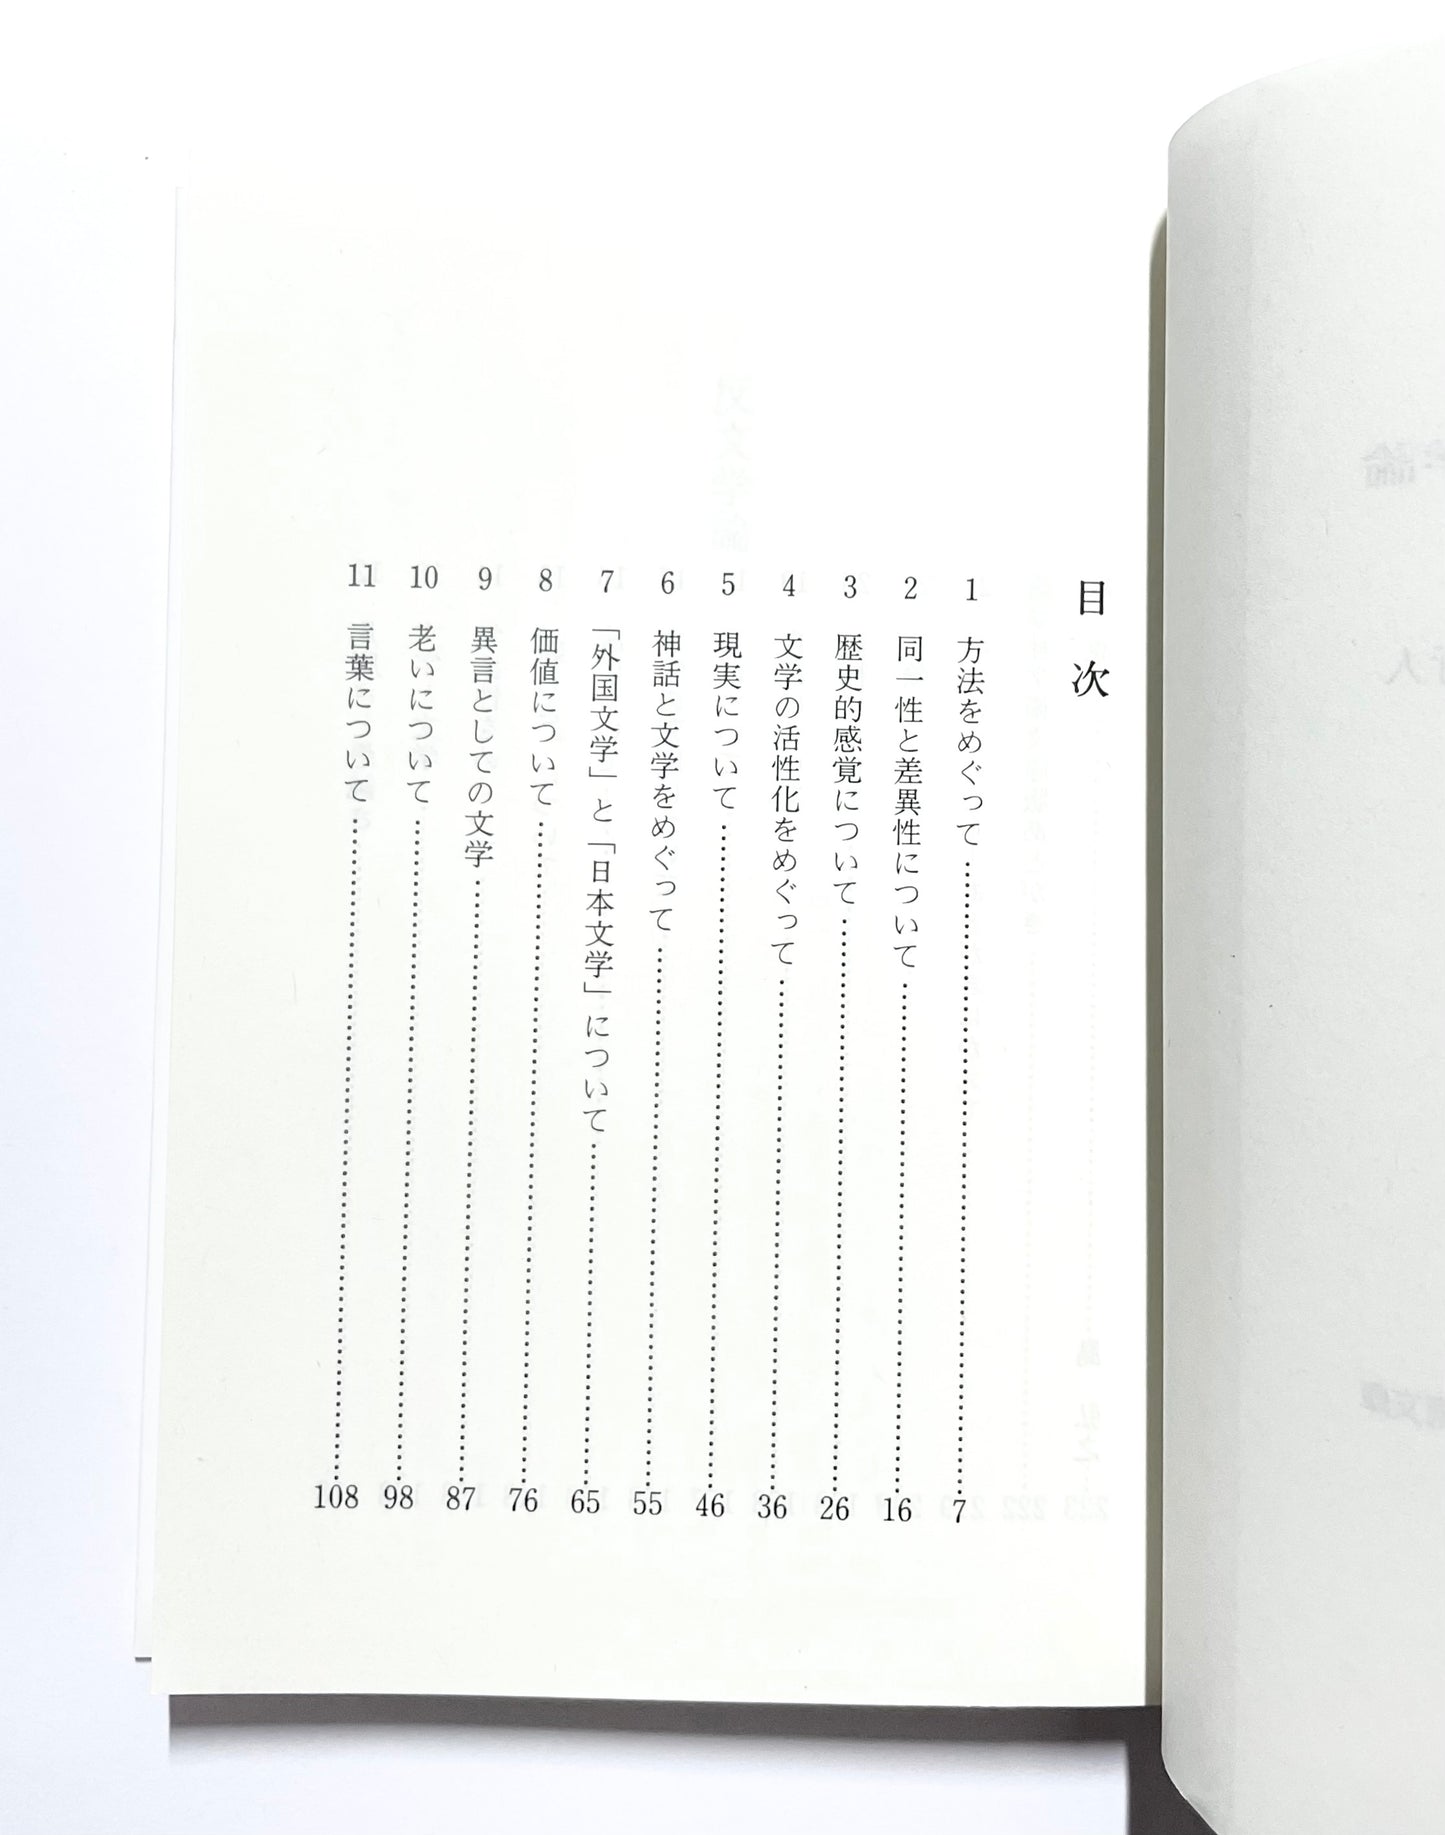 目次
1 方法をめぐって……7
2 同一性と差異性について……16
3 歴史的感覚について……26
4 文学の活性化をめぐって……36
5 現実について……46
6 神話と文学をめぐって……55
7 「外国文学」と「日本文学」について……65
8 価値について……76
9 異言としての文学……87
10 老いについて……98
11 言葉について……108